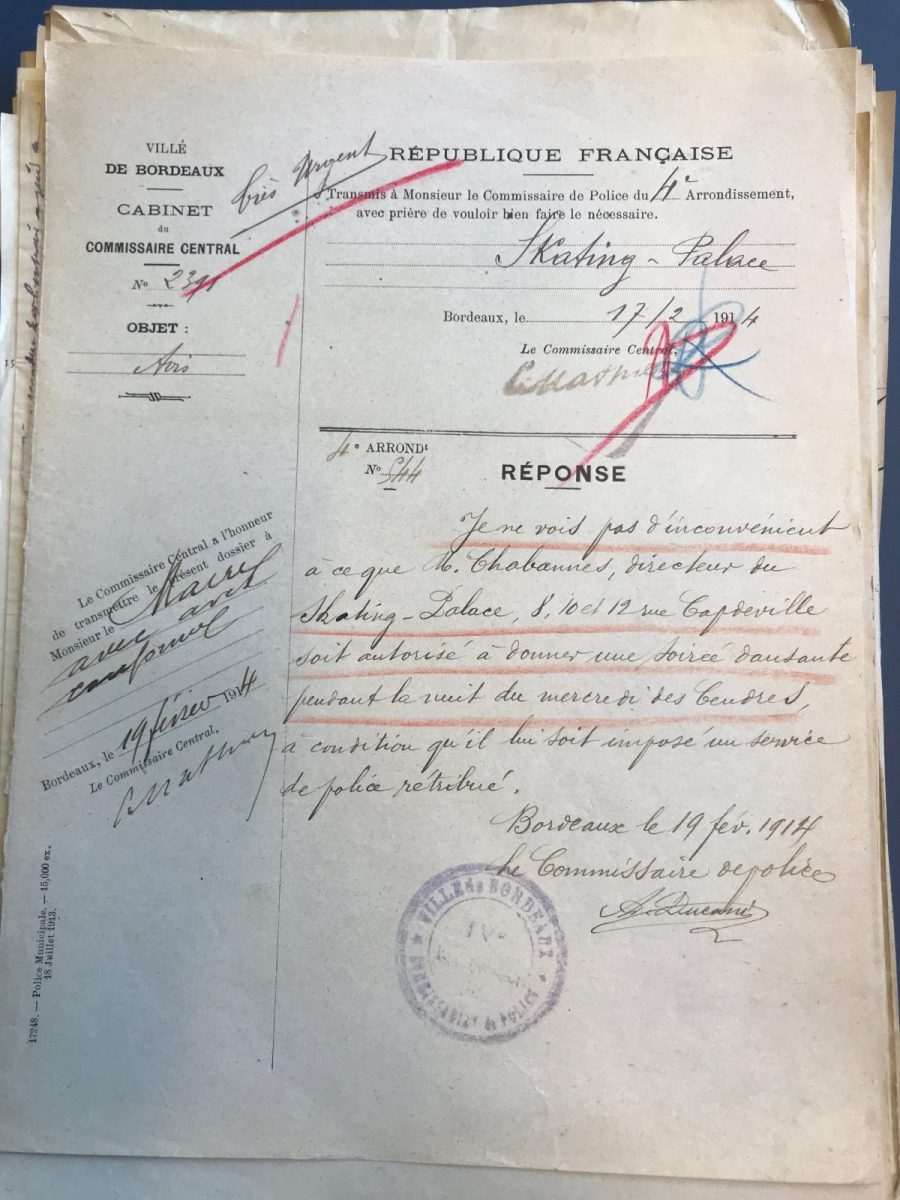 VILLE
DE BORDEAUX
CABINET
du
COMMISSAIRE CENTRAL
N° 2391
OBJET :
Avis
très Urgent
RÉPUBLIQUE FRANÇAISE
Transmis à Monsieur le Commissaire de Police du 4e Arrondissement,
avec prière de vouloir bien faire le nécessaire.
Skating-Palace
Bordeaux, le 17/2 1914
Le Commissaire Central,
4e ARRONDt
N° 544
RÉPONSE
Je ne vois pas d'inconvénient
à ce que M. Chabannes, directeur du
Skating-Palace, 8, 10 et 12 rue Capdeville
soit autorisé à donner une soirée dansante
pendant la nuit du mercredi des Cendres,
à condition qu'il lui soit imposé un service
de police rétribué.
Bordeaux le 19 fév. 1914
Le Commissaire de police
Le Commissaire Central a l'honneur
de transmettre le présent dossier à
Monsieur le Maire
avec avis
conforme
Bordeaux, le 19 février 1914
Le Commissaire Central,
VILLE DE BORDEAUX
COMMISSARIAT de POLICE
17248. — Police Municipale. — 15,000 ex.
18 Juillet 1913.